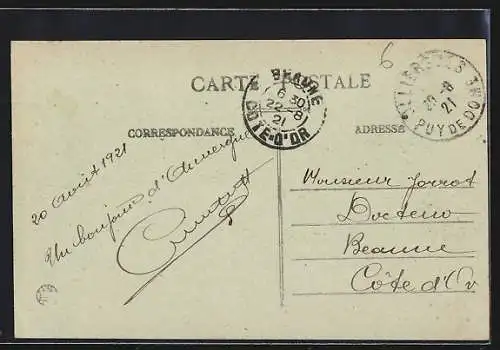 CARTE POSTALE
CORRESPONDANCE
ADRESSE
BEAUNE
6 30
22-8
21
COTE-D'OR
20-8
21
PUY DE DOME
6
20 Août 1921
Un bonjour d'Auvergne
Monsieur Jorrot
Docteur
Beaune
Côte d'Or